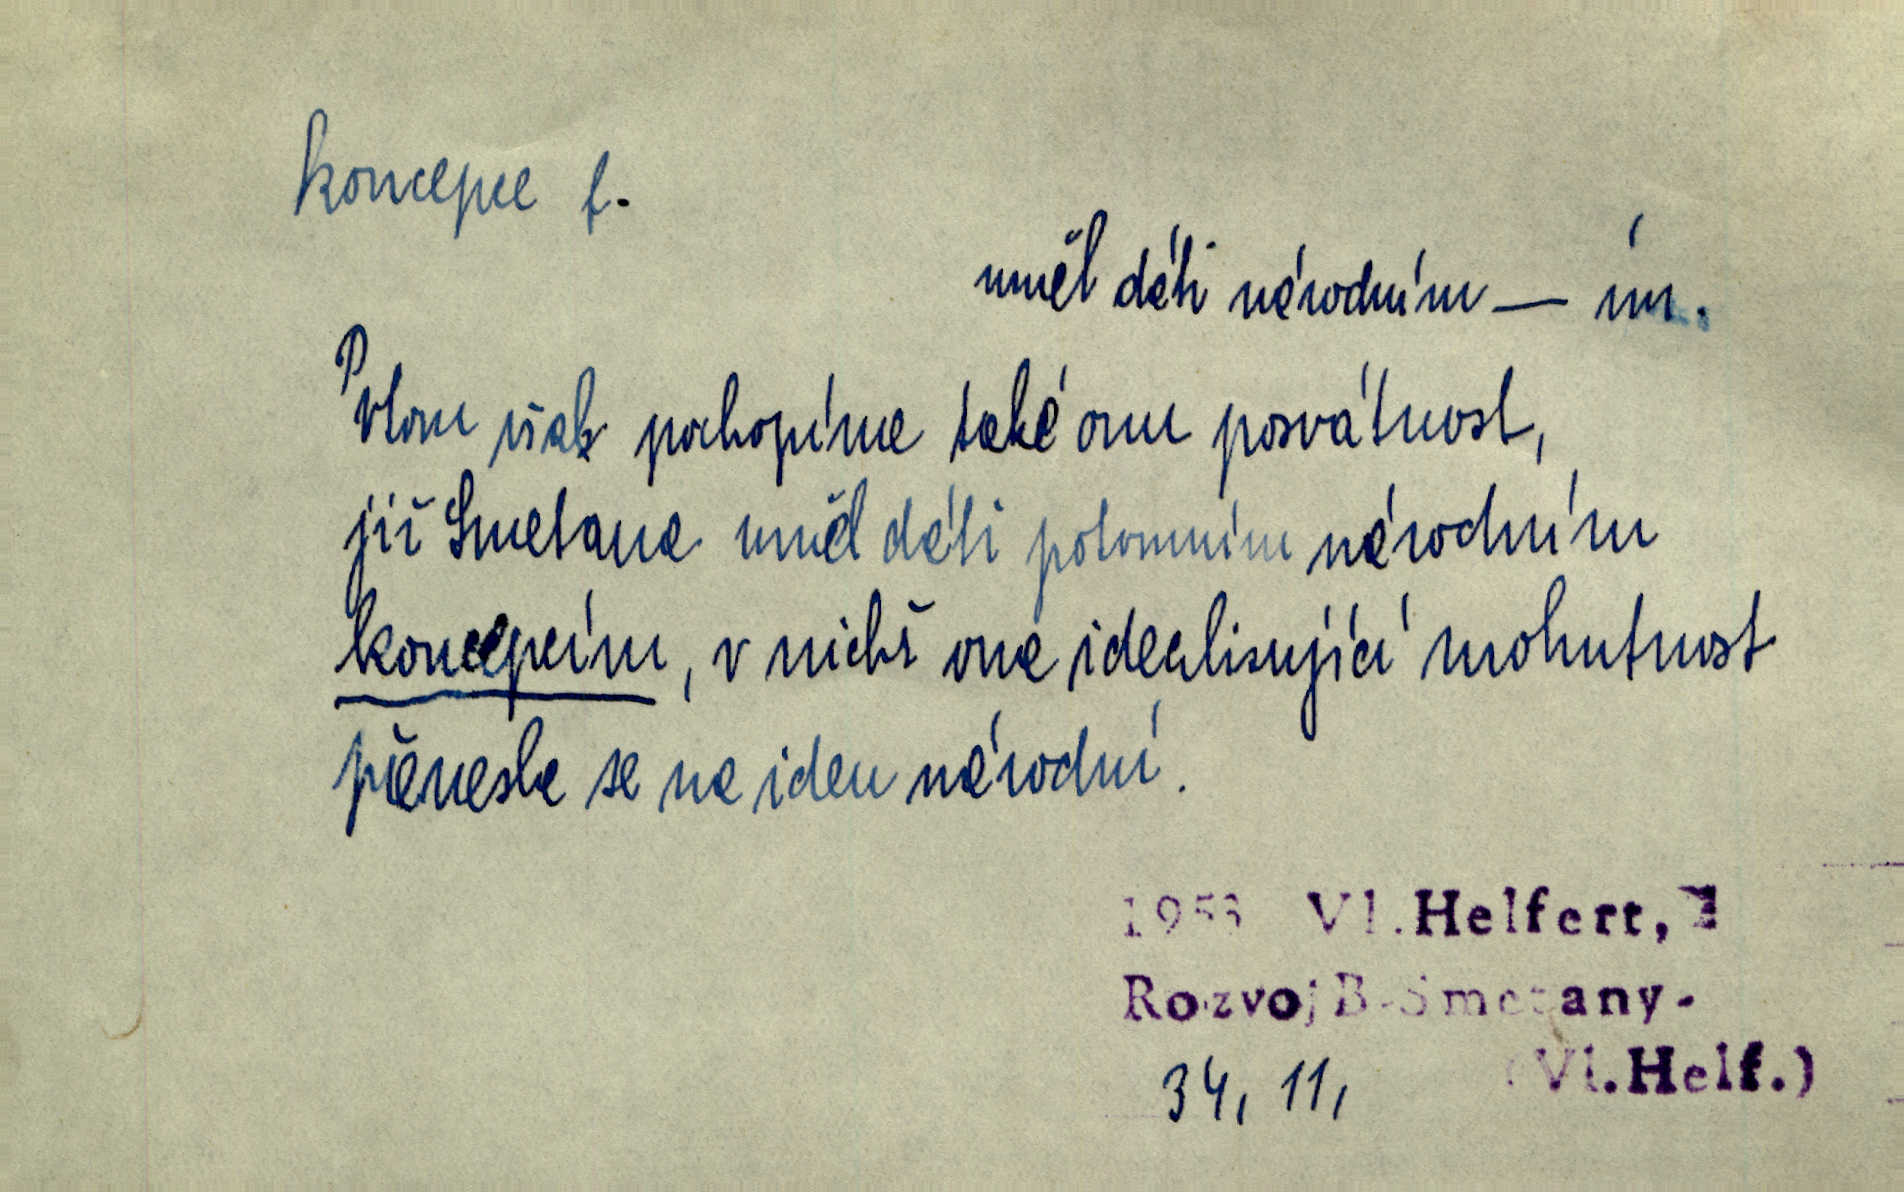 koncepce f.
uměl dáti národním — ím.
P
v tom však pochopíme také onu posvátnost,
již Smetana uměl dáti potomním národním
koncepcím, v nichž ona idealisující mohutnost
přenesla se na ideu národní.
1953 Vl. Helfert,
Rozvoj B. Smetany-
34, 11, (Vl. Helf.)